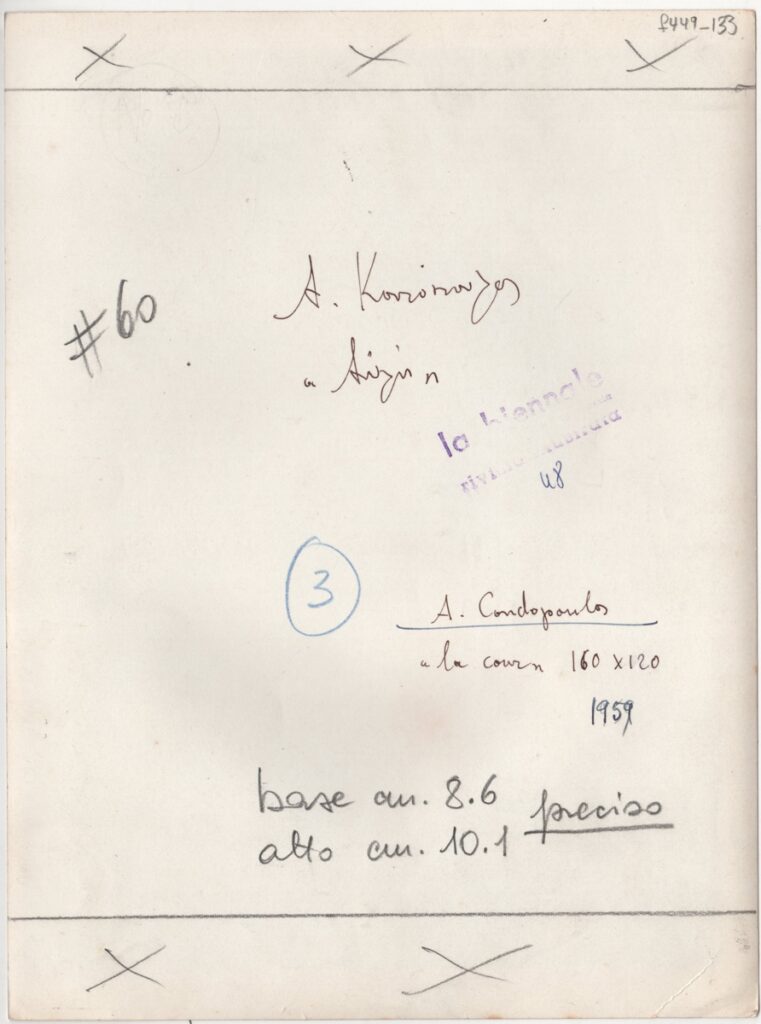 f449-133
#60
Α. Κοντόπουλος
la biennale
48
3
A. Condopoulos
"la cour" 160 x 120
1959
base cm. 8.6 preciso
alto cm. 10.1